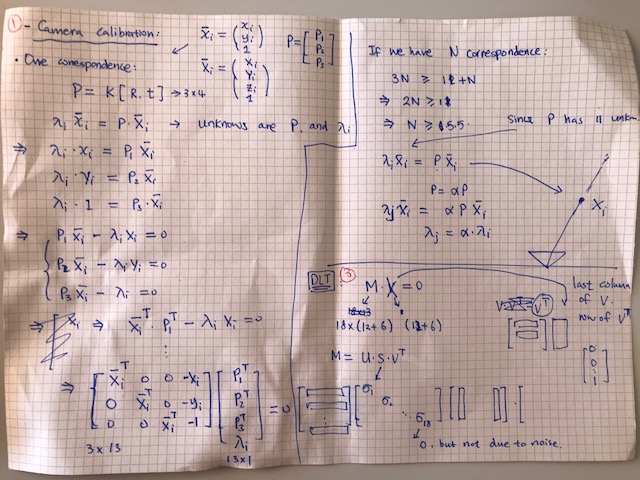 ① - Camera calibration:
x̄ᵢ = (xᵢ yᵢ 1)
P = [P₁ P₂ P₃]
• One correspondence:
X̄ᵢ = (Xᵢ Yᵢ Zᵢ 1)
P = K[R, t] → 3x4
λᵢ x̄ᵢ = P · X̄ᵢ → unknows are P, and λᵢ
⇒ λᵢ · xᵢ = P₁ X̄ᵢ
λᵢ · yᵢ = P₂ X̄ᵢ
λᵢ · 1 = P₃ · X̄ᵢ
⇒ P₁ X̄ᵢ - λᵢ xᵢ = 0
P₂ X̄ᵢ - λᵢ yᵢ = 0
P₃ X̄ᵢ - λᵢ = 0
⇒ X̄ᵢᵀ · P₁ᵀ - λᵢ xᵢ = 0
⋮
⇒ [X̄ᵢᵀ 0 0 -xᵢ
0 X̄ᵢᵀ 0 -yᵢ
0 0 X̄ᵢᵀ -1] [P₁ᵀ P₂ᵀ P₃ᵀ λᵢ] = 0
3 x 13
13x1
If we have N correspondence:
3N ≥ 11 + N
⇒ 2N ≥ 11
⇒ N ≥ 5.5.
since P has 11 unkn
λᵢ x̄ᵢ = P X̄ᵢ
P = αP
Xᵢ
λⱼ x̄ᵢ = α P X̄ᵢ
λⱼ = α · λᵢ
DLT ③
M · X = 0
18 x (12+6) (12+6)
Vᵀ
last column
of V.
row of Vᵀ
M = U · S · Vᵀ
[0 0 ⋮ 1]
σ₁
σ₂
σ₁₈
0, but not due to noise.